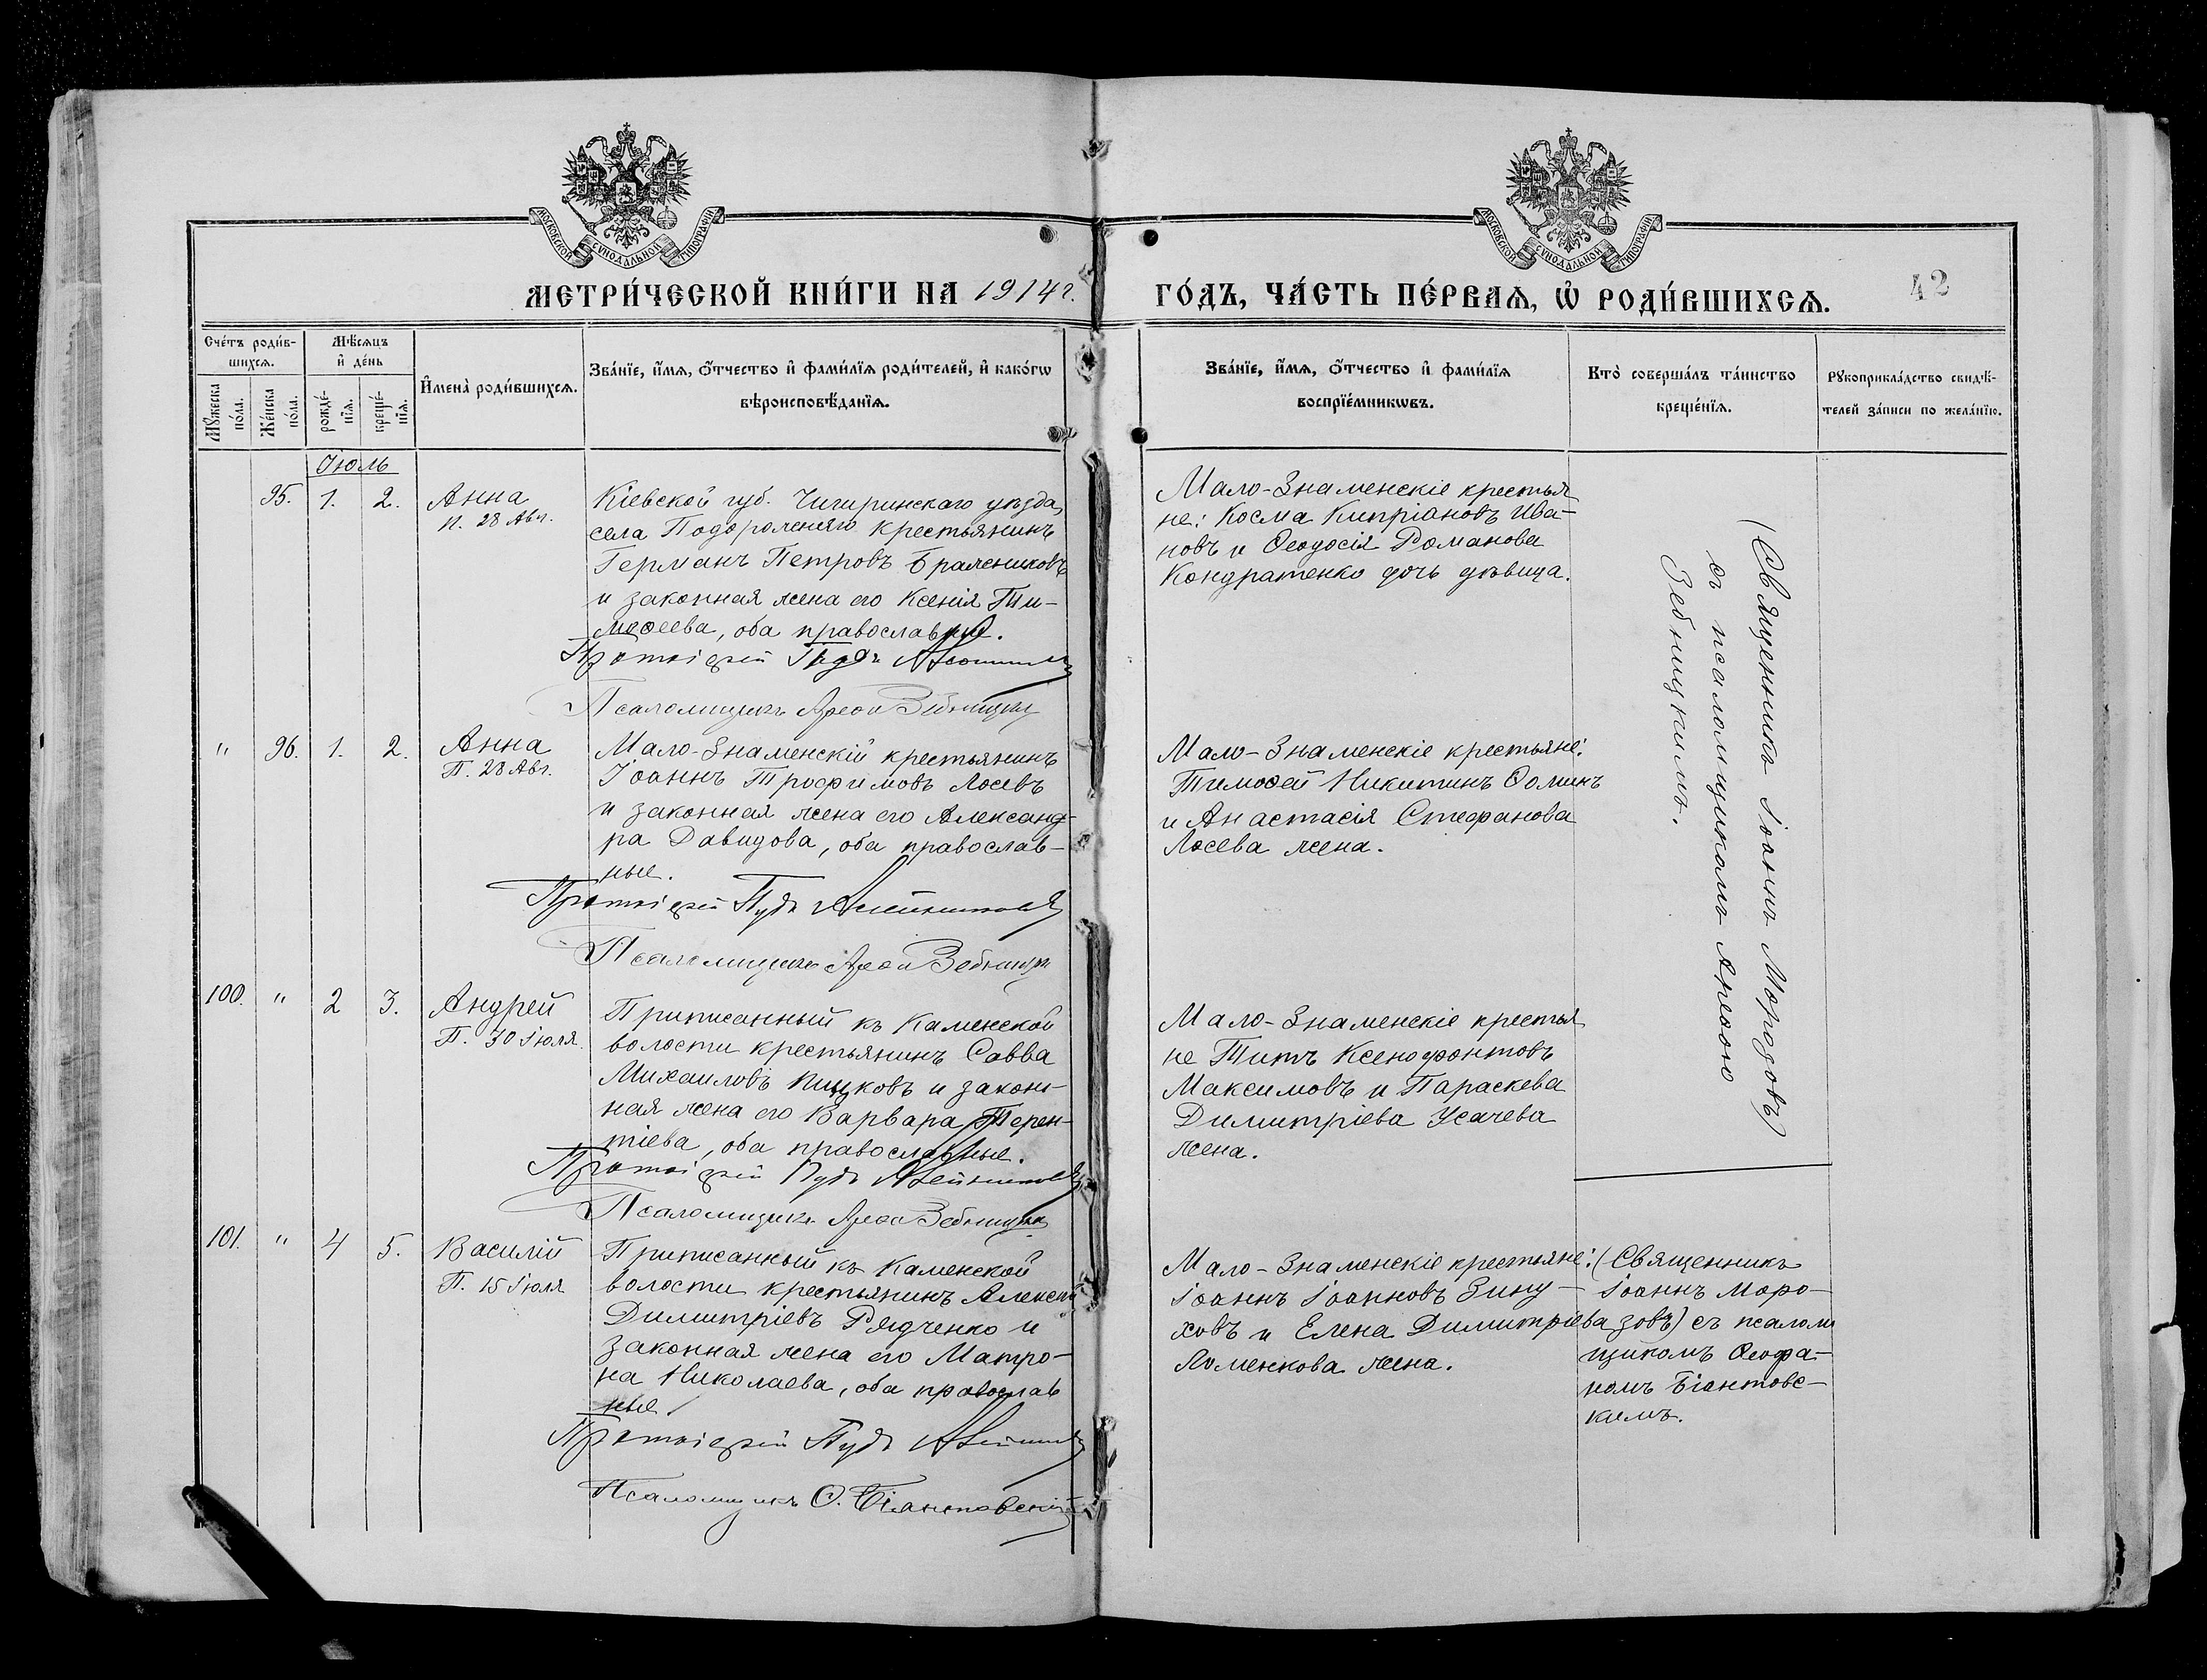 МОСКОВСКОЙ СѴНОДАЛЬНОЙ ТИПОГРАФІИ
МОСКОВСКОЙ СѴНОДАЛЬНОЙ ТИПОГРАФІИ
МЕТРИ́ЧЕСКОЙ КНИ́ГИ НА 1914 г.
ГО́ДЪ, ЧА́СТЬ ПЕ́РВАѦ, Ѡ҆ РОДИ́ВШИХСѦ.
42
Сче́тъ роди́в-
шихсѧ.
Мꙋжеска по́ла.
Же́нска по́ла.
Мѣ́сѧцъ
и҆ де́нь
рожде́-
нїѧ.
креще́-
нїѧ.
И҆мена̀ роди́вшихсѧ.
Зва́нїе, и҆́мѧ, ѻ҆́тчество и҆ фами́лїѧ роди́телей, и҆ како́гѡ
вѣроисповѣ́данїѧ.
Зва́нїе, и҆́мѧ, ѻ҆́тчество и҆ фами́лїѧ
воспрїе́мникѡвъ.
Кто̀ соверша́лъ та́инство
креще́нїѧ.
Рꙋкоприкла́дство свидѣ́-
телей за́писи по жела́нїю.
Іюль
95. 1. 2.
Анна
п. 28 Авг.
Кіевской губ. Чигиринскаго уѣзда,
села крестьянинъ
Германъ Петровъ
и законная жена его Ксенія Ти-
моѳеева, оба православные.
Протоіерей Пудъ
Псаломщикъ Ареѳа Зебницкій
Мало-Знаменскіе крестья-
не: Косма Кипріановъ Ива-
новъ и Ѳеодосія Романова
Кондратенко дочь дѣвица.
(Священникъ Іоаннъ Морозовъ)
съ псаломщикомъ Ареѳою
Зебницкимъ.
" 96. 1. 2.
Анна
П. 28 Авг.
Мало-Знаменскій крестьянинъ
Іоаннъ Трофимовъ Лосевъ
и законная жена его Александ-
ра Давидова, оба православ-
ные.
Протоіерей Пудъ
Псаломщикъ Ареѳа Зебницкій
Мало-Знаменскіе крестьяне:
Тимоѳей Никитинъ Ѳоминъ
и Анастасія Стефанова
Лосева жена.
100. " 2 3.
Андрей
П. 30 Іюля
Приписанный къ Каменской
волости крестьянинъ Савва
Михаиловъ и закон-
ная жена его Варвара Терен-
тіева, оба православные.
Протоіерей Пудъ
Псаломщикъ Ареѳа Зебницкій
Мало-Знаменскіе крестья
не Титъ Ксенофонтовъ
Максимовъ и Параскева
Димитріева Усачева
жена.
101. " 4 5.
Василій
П. 15 Іюля
Приписанный къ Каменской
волости крестьянинъ Алексѣй
Димитріевъ Рядченко и
законная жена его Матро-
на Николаева, оба православ
ные.
Протоіерей Пудъ
Псаломщикъ Ѳ. Біантовскій
Мало-Знаменскіе крестьяне:
Іоаннъ Іоанновъ Зину-
ховъ и Елена Димитріева
Ломенкова жена.
(Священникъ
Іоаннъ Моро-
зовъ) съ псалом
щикомъ Ѳеофа-
номъ Біантовс-
кимъ.